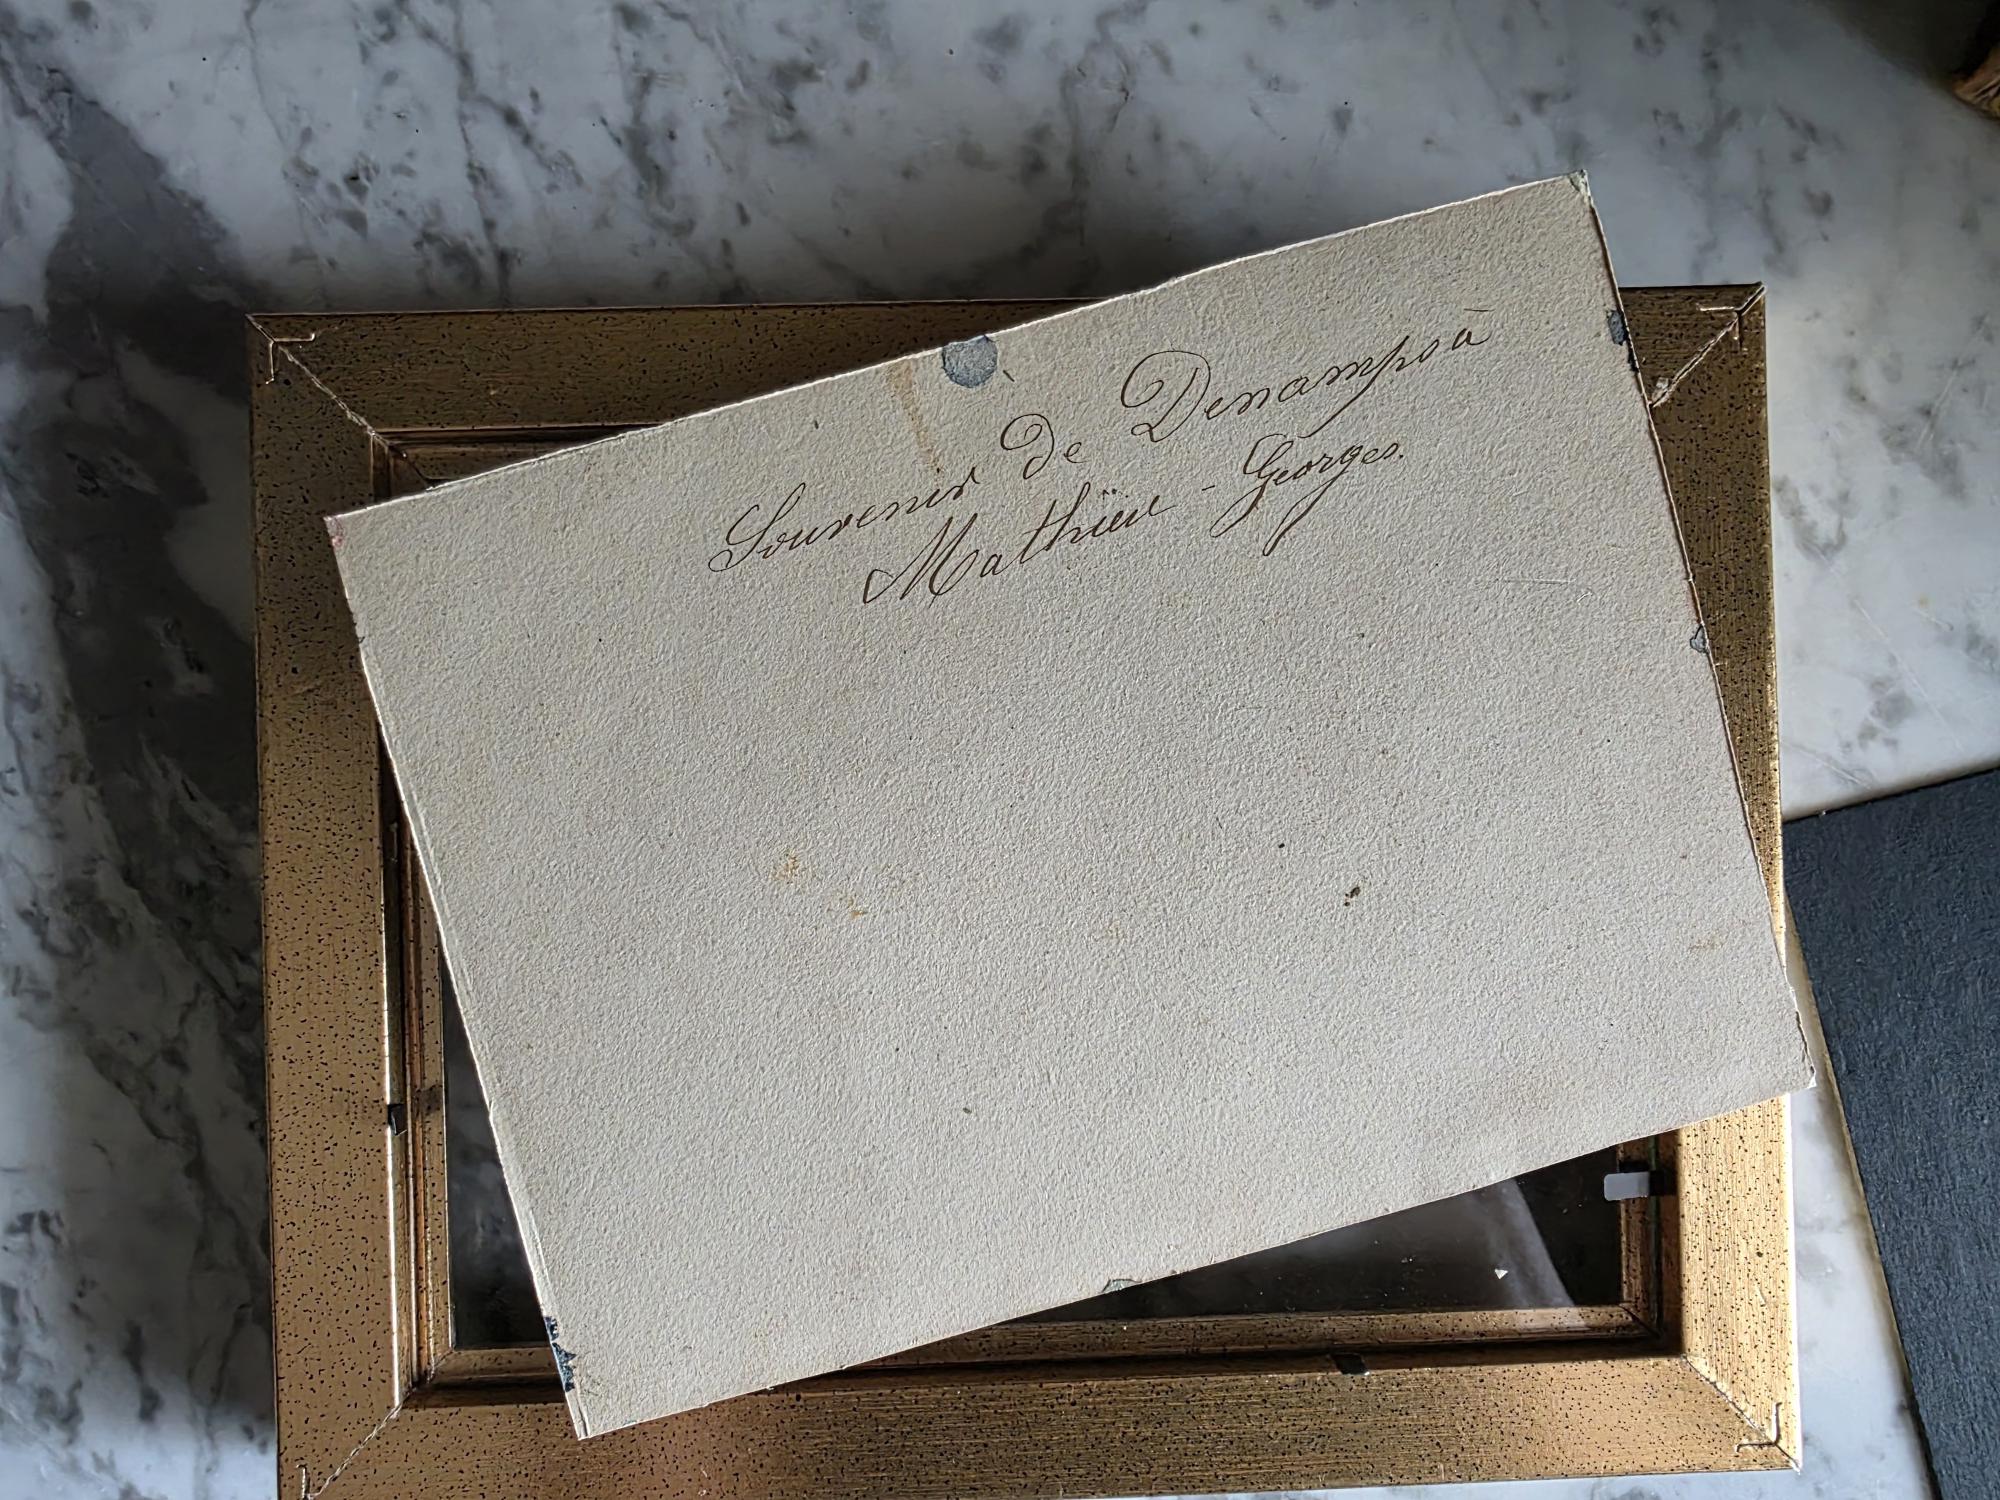 Souvenir de Denampoà
Mathïeu - Georges.